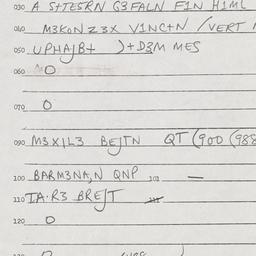 030 A S+TESRN G3FALN F1N H1ML
040 M3KONZ3X V1NC+N /VERT
050 UPHAJB+ )+D3M MES
060 O
070 O
090 M3X1L3 BEJTN QT (900 (988
100 BARM3NA,N QNP 103 —
110 TA.R3 BREJT
120 O